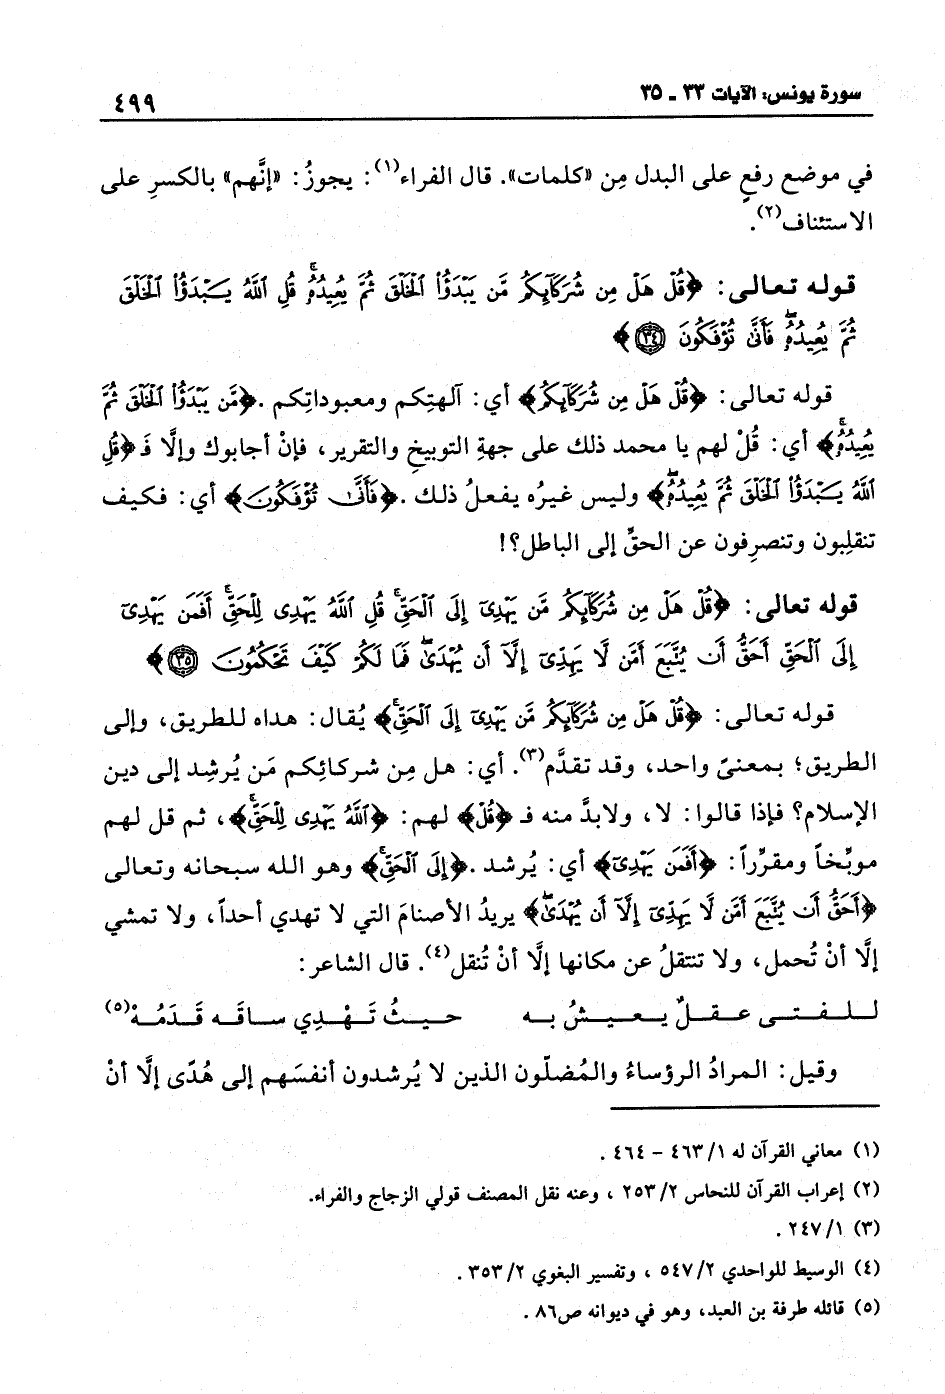 سورة يونس: الآيات ٣٣ - ٣٥
٤٩٩
في موضع رفعٍ على البدل مِن «كلمات». قال الفراء(١): يجوزُ: «إنَّهم» بالكسرِ على
الاستئناف(٢).
قوله تعالى: ﴿قُلْ هَلْ مِن شُرَكَآئِكُم مَّن يَبْدَؤُا۟ ٱلْخَلْقَ ثُمَّ يُعِيدُهُۥۚ قُلِ ٱللَّهُ يَبْدَؤُا۟ ٱلْخَلْقَ
ثُمَّ يُعِيدُهُۥۖ فَأَنَّىٰ تُؤْفَكُونَ ٣٤﴾
قوله تعالى: ﴿قُلْ هَلْ مِن شُرَكَآئِكُم﴾ أي: آلهتِكم ومعبوداتِكم. ﴿مَّن يَبْدَؤُا۟ ٱلْخَلْقَ ثُمَّ
يُعِيدُهُۥۚ﴾ أي: قُلْ لهم يا محمد ذلك على جهةِ التوبيخِ والتقرير، فإنْ أجابوك وإلَّا فَـ ﴿قُلِ
ٱللَّهُ يَبْدَؤُا۟ ٱلْخَلْقَ ثُمَّ يُعِيدُهُۥۖ﴾ وليس غيرُه يفعلُ ذلك. ﴿فَأَنَّىٰ تُؤْفَكُونَ﴾ أي: فكيف
تنقلِبون وتنصرِفون عن الحقِّ إلى الباطل؟!
قوله تعالى: ﴿قُلْ هَلْ مِن شُرَكَآئِكُم مَّن يَهْدِىٓ إِلَى ٱلْحَقِّۚ قُلِ ٱللَّهُ يَهْدِى لِلْحَقِّۗ أَفَمَن يَهْدِىٓ
إِلَى ٱلْحَقِّ أَحَقُّ أَن يُتَّبَعَ أَمَّن لَّا يَهِدِّىٓ إِلَّآ أَن يُهْدَىٰۖ فَمَا لَكُمْ كَيْفَ تَحْكُمُونَ ٣٥﴾
قوله تعالى: ﴿قُلْ هَلْ مِن شُرَكَآئِكُم مَّن يَهْدِىٓ إِلَى ٱلْحَقِّۚ﴾ يُقال: هداه للطريق، وإلى
الطريق؛ بمعنىً واحد، وقد تقدَّم(٣). أي: هل مِن شركائِكم مَن يُرشد إلى دين
الإسلام؟ فإذا قالوا: لا، ولابدَّ منه فـ ﴿قُلِ﴾ لهم: ﴿ٱللَّهُ يَهْدِى لِلْحَقِّۗ﴾، ثم قل لهم
موبِّخاً ومقرِّراً: ﴿أَفَمَن يَهْدِىٓ﴾ أي: يُرشد. ﴿إِلَى ٱلْحَقِّ﴾ وهو الله سبحانه وتعالى
﴿أَحَقُّ أَن يُتَّبَعَ أَمَّن لَّا يَهِدِّىٓ إِلَّآ أَن يُهْدَىٰۖ﴾ يريدُ الأصنامَ التي لا تهدي أحداً، ولا تمشي
إلَّا أنْ تُحمل، ولا تنتقلُ عن مكانها إلَّا أنْ تُنقل(٤). قال الشاعر:
للفتى عقلٌ يعيشُ به حيثُ تَهْدِي ساقَه قَدَمُهْ(٥)
وقيل: المرادُ الرؤساءُ والمُضلّون الذين لا يُرشدون أنفسَهم إلى هُدًى إلَّا أنْ
(١) معاني القرآن له ١/ ٤٦٣ - ٤٦٤ .
(٢) إعراب القرآن للنحاس ٢/ ٢٥٣ ، وعنه نقل المصنف قولي الزجاج والفراء.
(٣) ١/ ٢٤٧ .
(٤) الوسيط للواحدي ٢/ ٥٤٧ ، وتفسير البغوي ٢/ ٣٥٣ .
(٥) قائله طرفة بن العبد، وهو في ديوانه ص٨٦ .